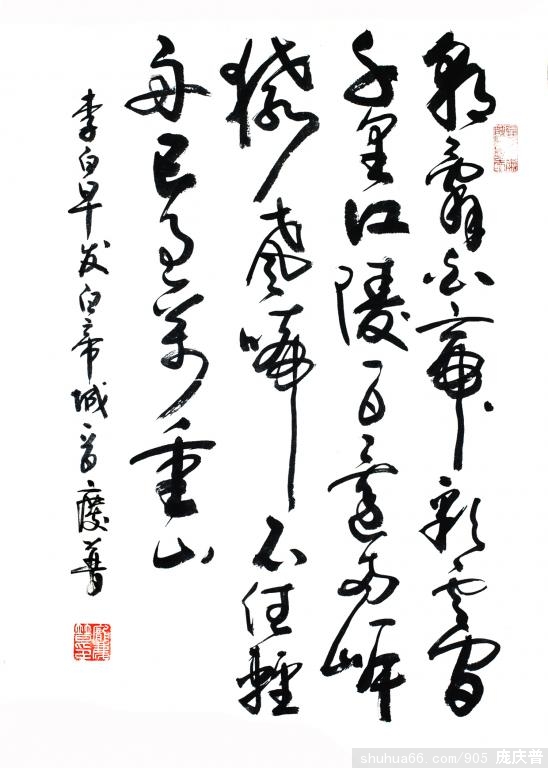 朝辭白帝彩雲間
千里江陵一日還两岸
猿聲啼不住輕
舟已過萬重山
李白早发白帝城一首慶普
shuhua66.com/905 庞庆普